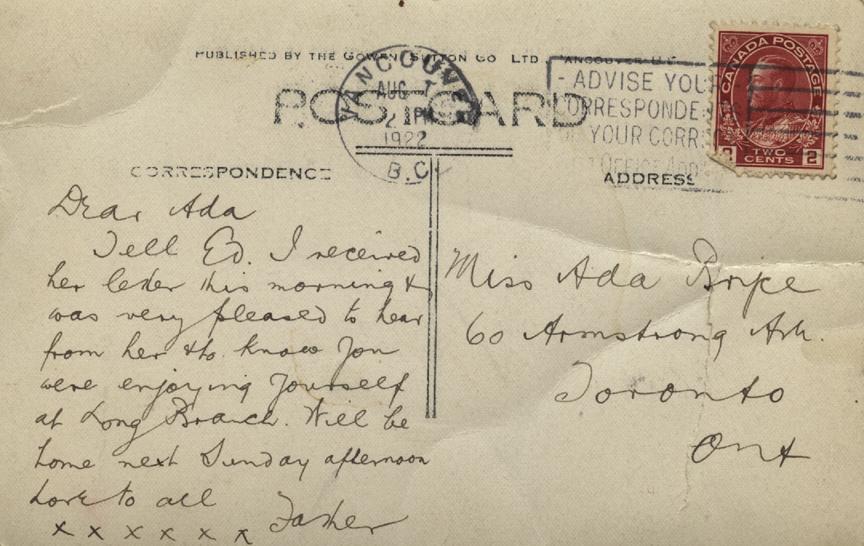 PUBLISHED BY THE GOWEN SUTTON CO LTD. VANCOUVER B.C.
POST CARD
VANCOUVER
AUG 7
2 PM
1922
B.C.
- ADVISE YOUR
CORRESPONDE
YOUR CORR
CANADA POSTAGE
2 TWO CENTS 2
CORRESPONDENCE
Dear Ada
Tell Ed. I received
her letter this morning &
was very pleased to hear
from her & to know you
were enjoying yourself
at Long Branch. Will be
home next Sunday afternoon
Love to all
Father
x x x x x x
ADDRESS
Miss Ada
60 Armstrong
Toronto
Ont